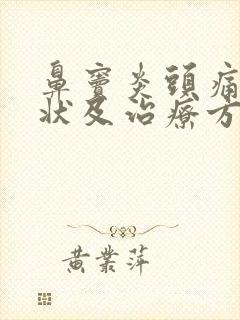 鼻竇炎頭痛
狀及治療方
黄業萍